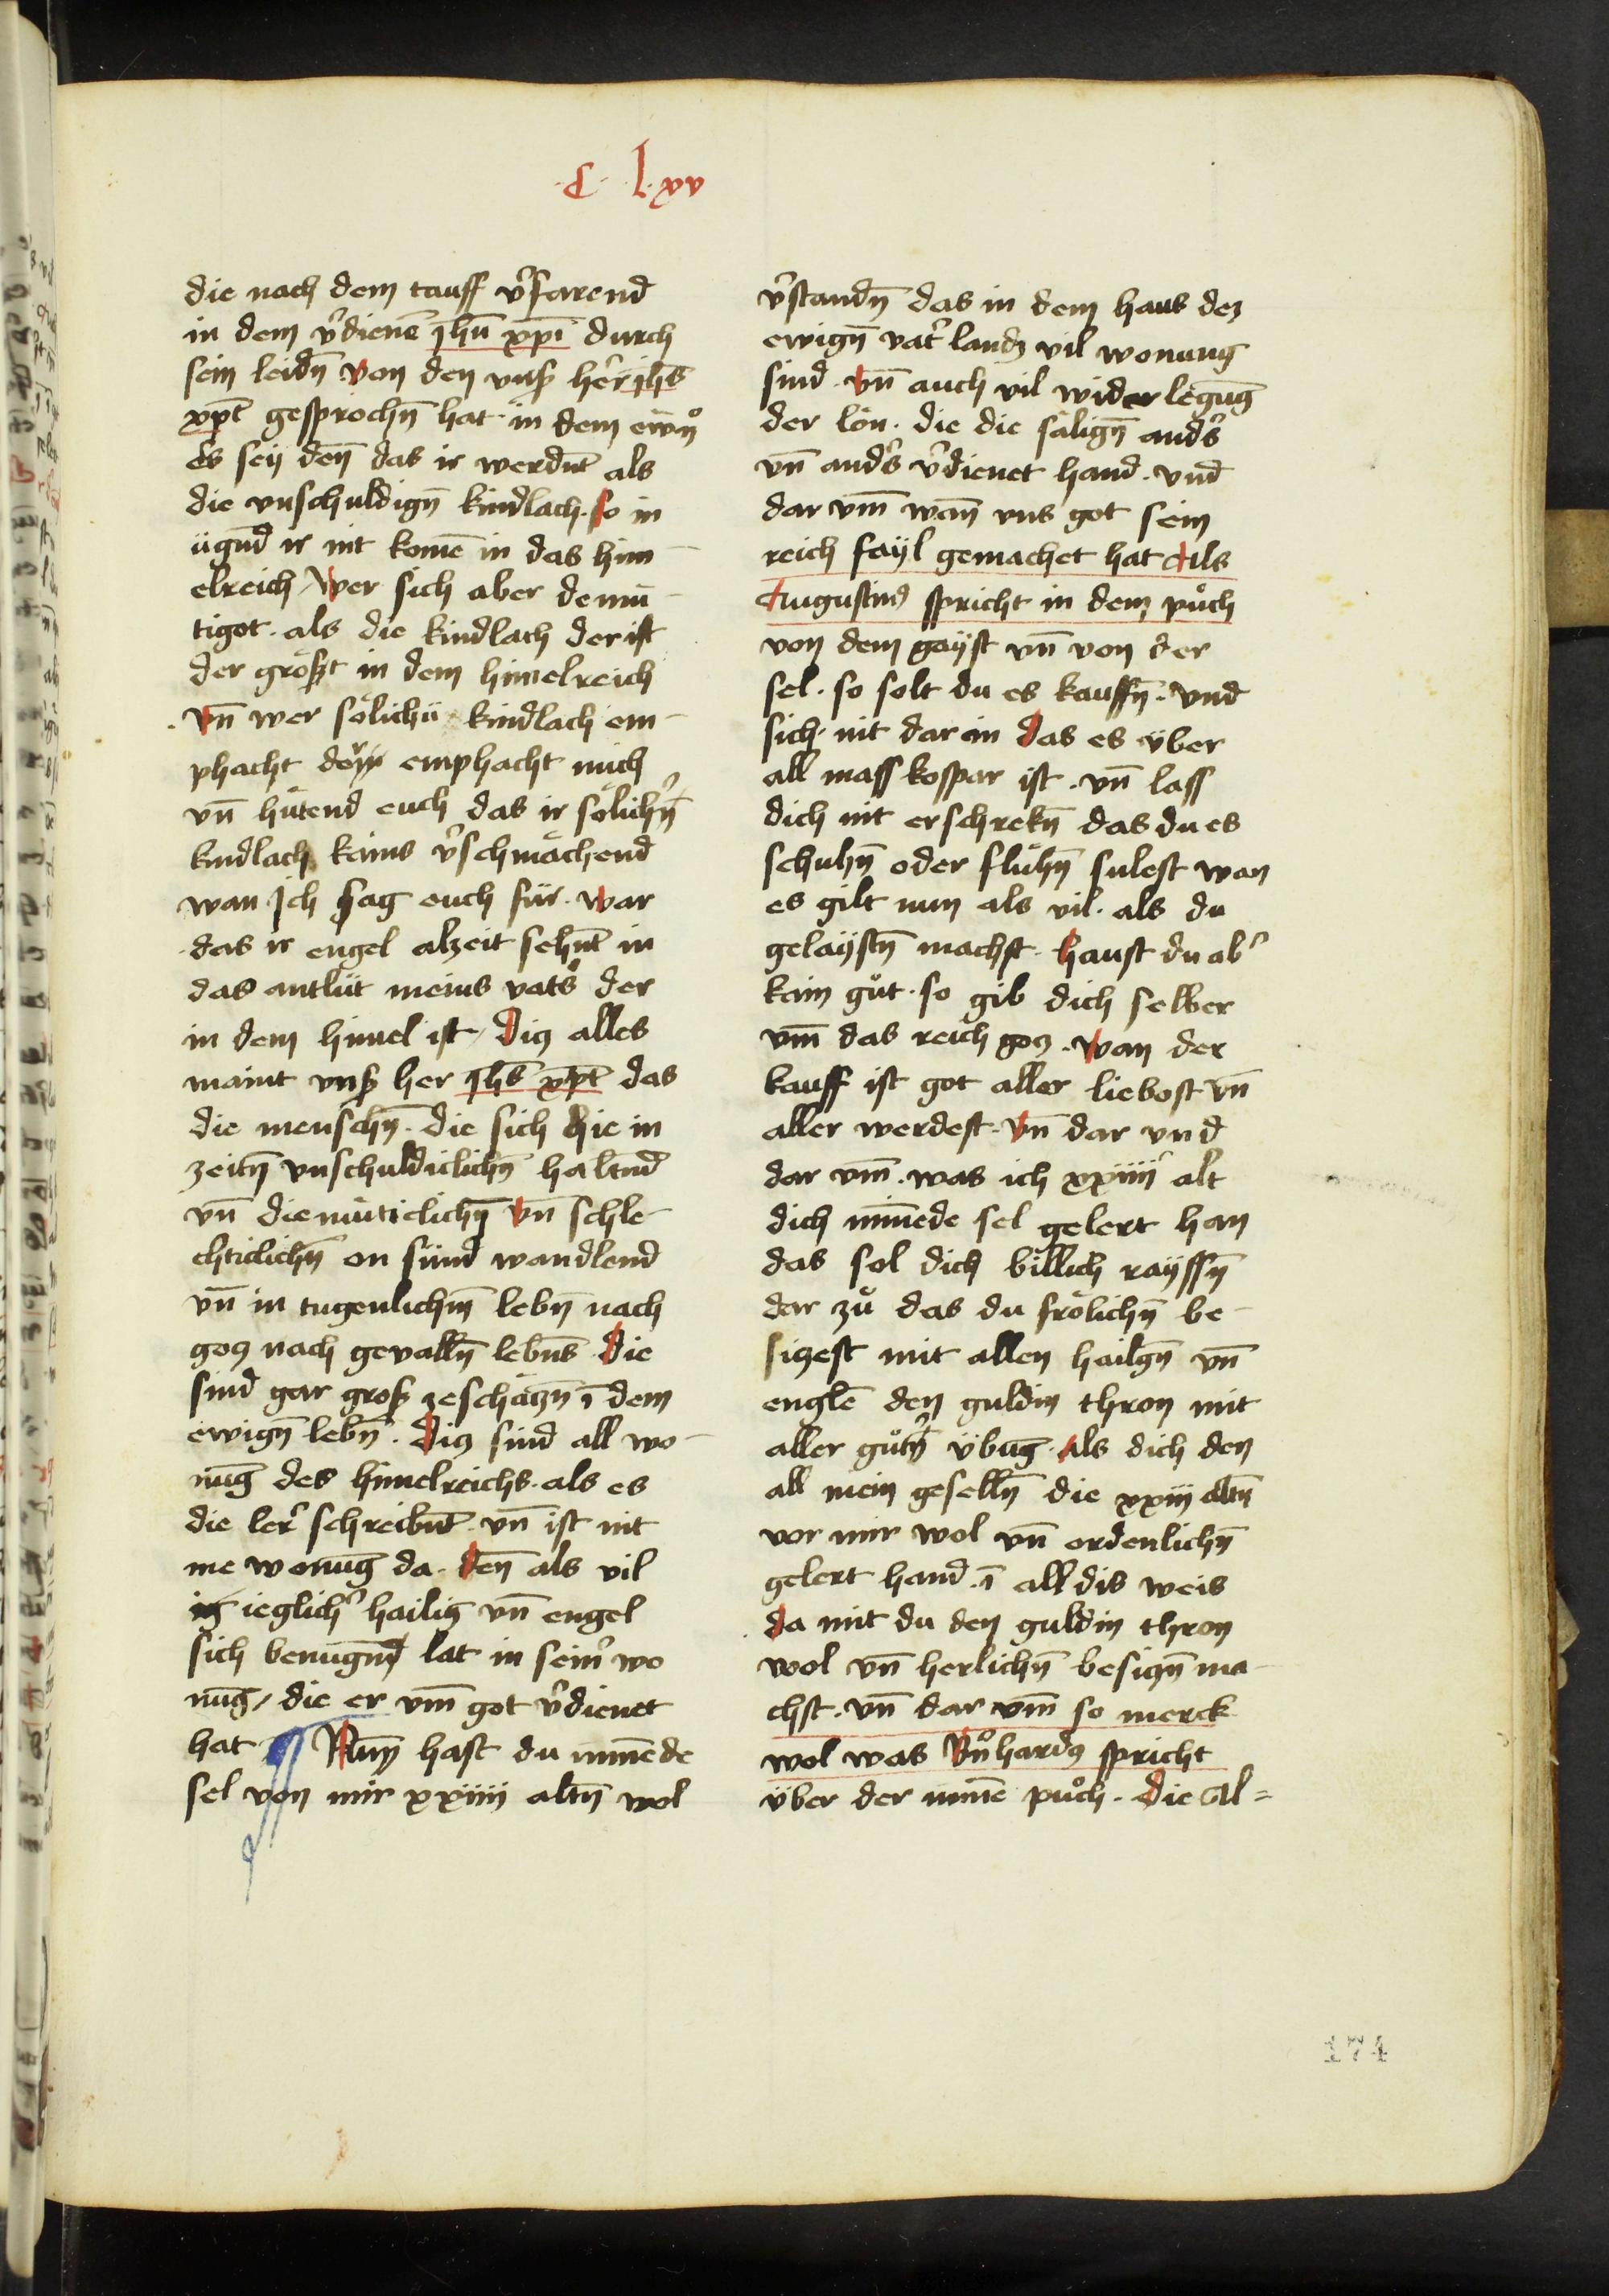 ·C· l·xv
die nach dem tauff v᷑farend
in dem v᷑dienē jhū xpī durch
sein leidn̄ von den vnsß her᷑ jhs̄
xpc̄ gesprochn̄ hat · in dem
es sey den̄ das ir werdn̄t als
die vnschuldign̄ kindlach · so in
ügnd̄ ir nit komē in das him̄
elreich / Wer sich aber demü
tigot · als die kindlach der ist
der gröſßt in dem himelreich
· vn̄ wer sölichü kindlach em¬
phacht der emphacht mich
vn̄ hütend euch das ir sölichn̄᷑
kindlach kains v᷑schmächend
wan Ich sag euch für · war
· das ir engel alzeit sehn̄t in
das antlüt meins vats᷑ der
in dem himel ist / Diz alles
maint vnsß her jhs̄ xpc̄ das
die menschn̄ · die sich hie in
zeitn̄ vnschuldiclichn̄ haltn̄d
vn̄ diemüticlichn̄ vn̄ schle¬
chticlichn̄ on sünd wandlend
vn̄ in tugenlichm̄ lebn̄ nach
goz nach gevalln̄ lebn̄s Die
sind gar groß zeschäzn̄ ī dem
ewign̄ lebn̄ · Diz sind all wo¬
nūg des himelreichs · als es
die ler᷑ schreibn̄t · vn̄ ist nit
me wonūg da · den̄ als vil
ieglich᷑ hailig vn̄ engel
sich benügn̄d lat in sein᷑ wo
nūg / die er vm̄ got v᷑dienet
hat · Nun hast du minēde
sel von mir xxiiii altn̄ wol
v᷑standn̄ das in dem haus dez
ewign̄ vat᷑ landz vil wonung
sind · vn̄ auch vil widerlegūg
der lön · die die sälign̄ ands᷑
vn̄ ands᷑ v᷑dienet hand · vnd
dar vm̄ wan̄ vns got sein
reich fayl gemachet hat Als
Augustinꝰ spricht in dem puͦch
von dem gayst vn̄ von der
sel · so solt du es kauffn̄ · vnd
sich · nit dar in das es über
all mass kospar ist · vn̄ lass
dich nit erschrekn̄ das du es
schuhn̄ oder fluhn̄ sulest wan
es gilt nun als vil · als du
gelaystn̄ machst · haust du ab᷑
kain guͦt · so gib dich selber
vm̄ das reich goz · wan der
kauff ist got aller liebost vn̄
aller werdest · vn̄ dar vnd
dar vm̄ · was ich xxiiii᷑ alt
dich minēde sel gelert han
das sol dich billich rayssn̄
dar zuͦ das du frölichn̄ be¬
sizest mit allen hailgn̄ vn̄
englē den guldin thron mit
aller guͦtn̄᷑ übūg · als dich den
all mein geselln̄ die xxiij altn̄
vor mir wol vn̄ ordenlichn̄
gelert hand · ī all dis weis
da mit du den guldin thron
wol vn̄ herlichn̄ besizn̄ ma¬
chst · vn̄ dar vm̄ so merck
wol was Bn᷑hardꝰ spricht
über der minē puͦch · Die Al=
174